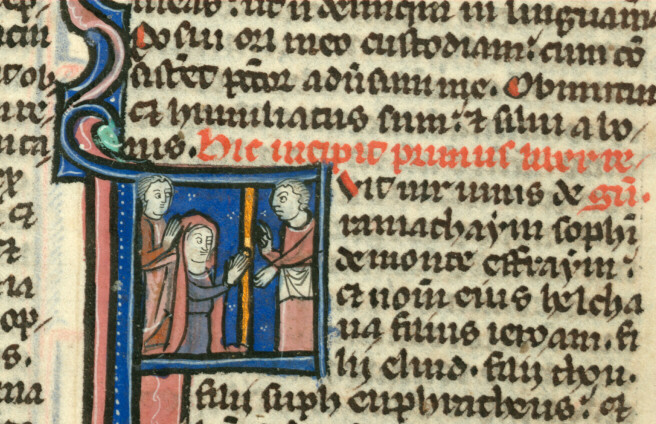 meas: ut ñ delinquam in lingua m
Posui ori meo custodiam: cum cō
sistet pctor adūsum me. Obmutui
et humiliatus sum: ⁊ silui a bo
nis. Hic incipit primus liber re
uit uir unus de gū.
ramathaym sophī
de monte effraym:
et nom̄ eius helcha
na filius ieroam. fi
lij eliud. filij thou.
filij suph euphratheus: et